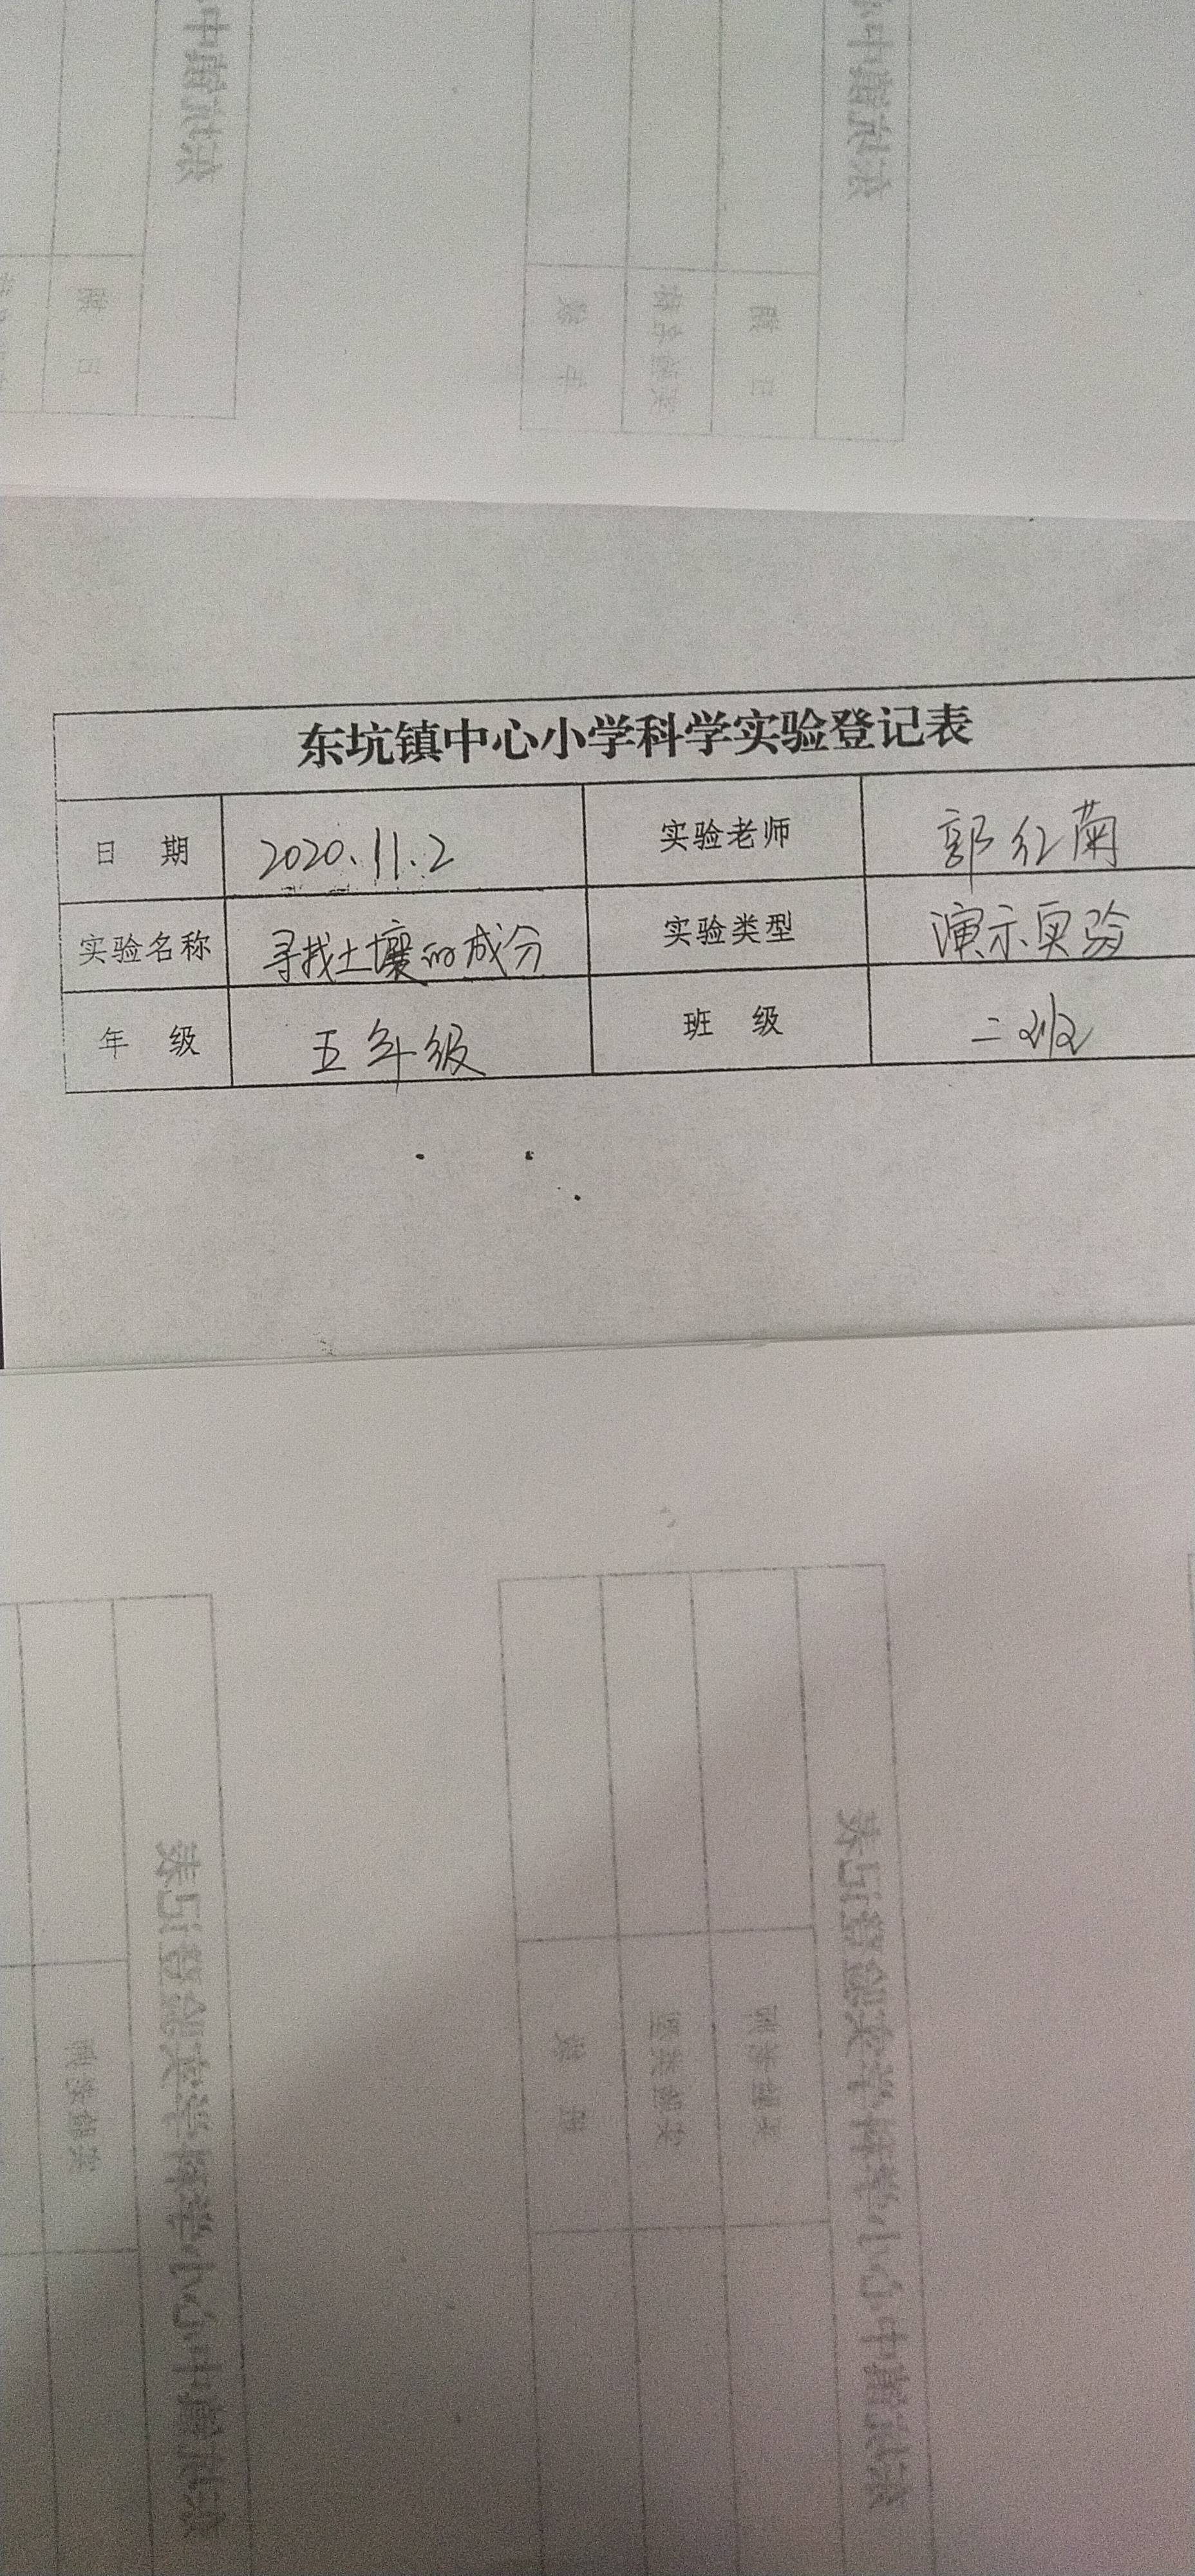 东坑镇中心小学科学实验登记表
日 期 2020.11.2 实验老师 郭红菊
实验名称 寻找土壤的成分 实验类型 演示实验
年 级 五年级 班 级 二班